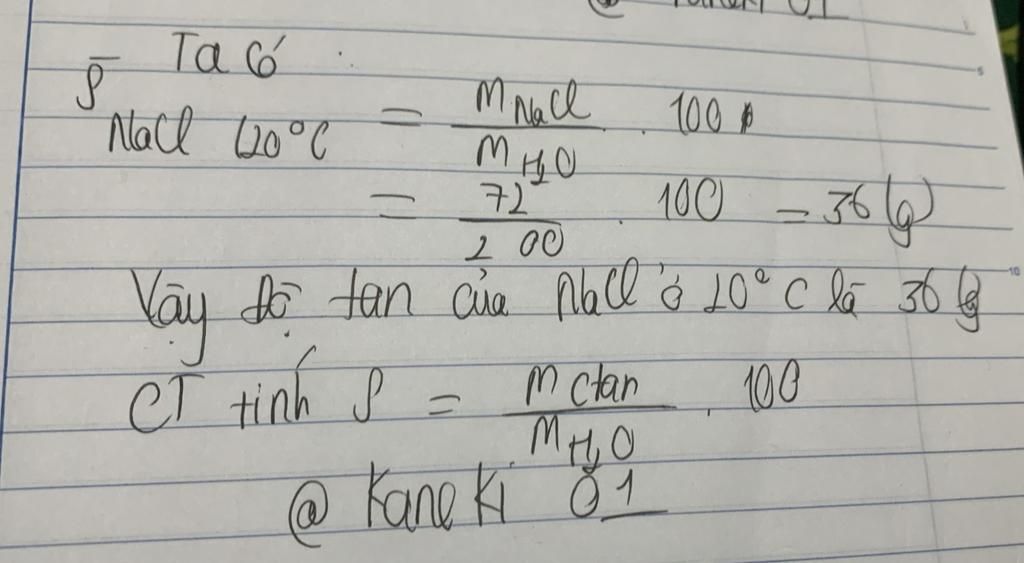 Ta có
S NaCl (20°C) = mNaCl / mH2O . 100
= 72 / 200 . 100 = 36 (g)
Vậy độ tan của NaCl ở 20°C là 36 (g)
CT tính S = m ctan / mH2O . 100
@ Kaneki 01